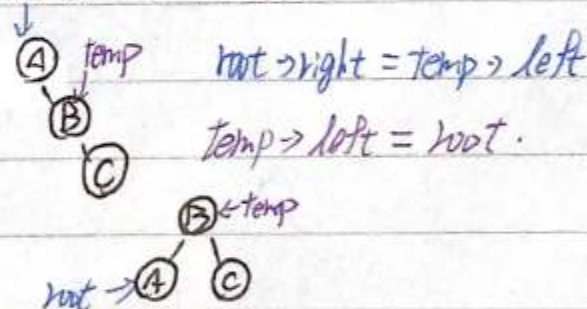 A
temp
root→right = temp→left
B
temp→left = root.
C
B ←temp
root → A
C